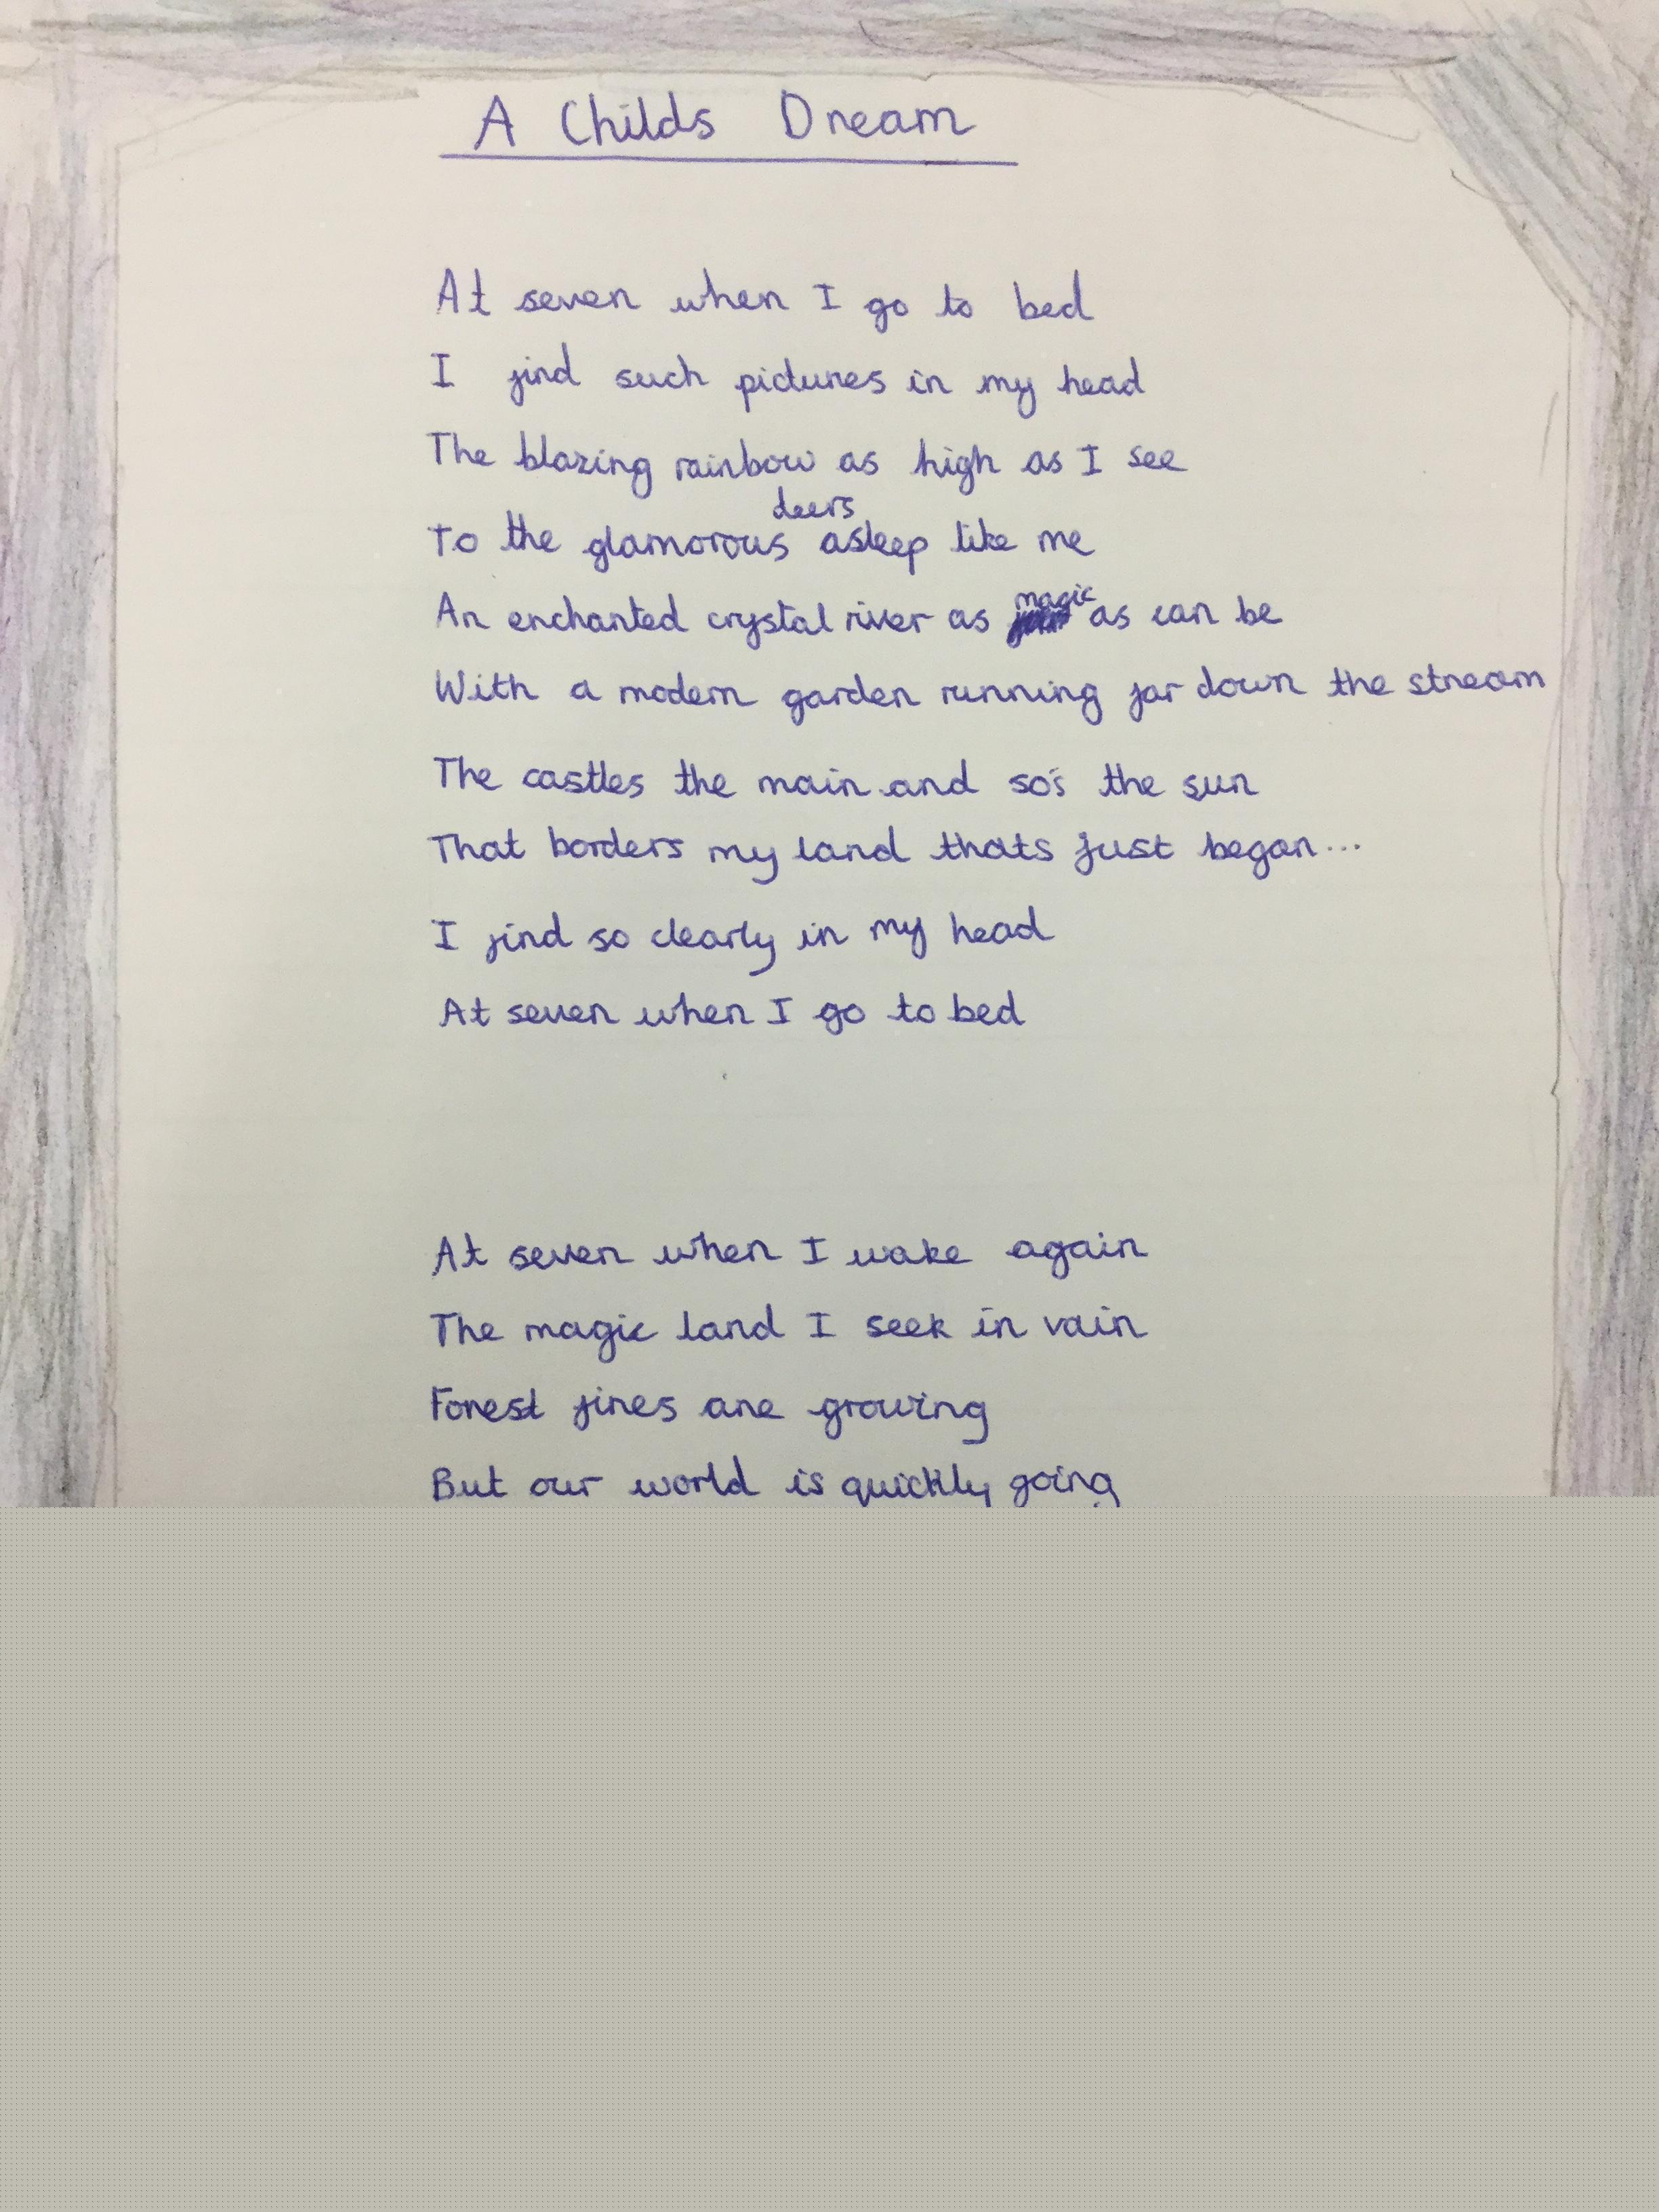 A Childs Dream
At seven when I go to bed
I find such pictures in my head
The blazing rainbow as high as I see
To the glamorous deers asleep like me
An enchanted crystal river as magic as can be
With a modern garden running far down the stream
The castles the main and so's the sun
That borders my land thats just began...
I find so clearly in my head
At seven when I go to bed
At seven when I wake again
The magic land I seek in vain
Forest fires are growing
But our world is quickly going